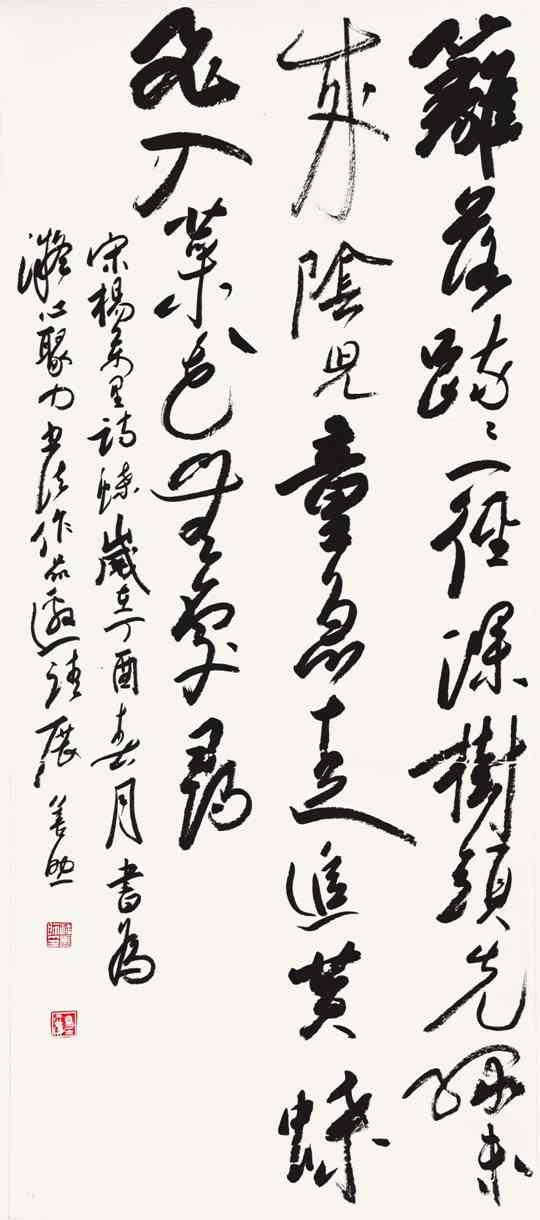 籬落疏〻一徑深樹頭先緑未
成陰兒童急走追黄蝶
飛入菜花無處尋
宋楊萬里詩蝶歲在丁酉春月書為
凝心聚力書法作品邀請展善